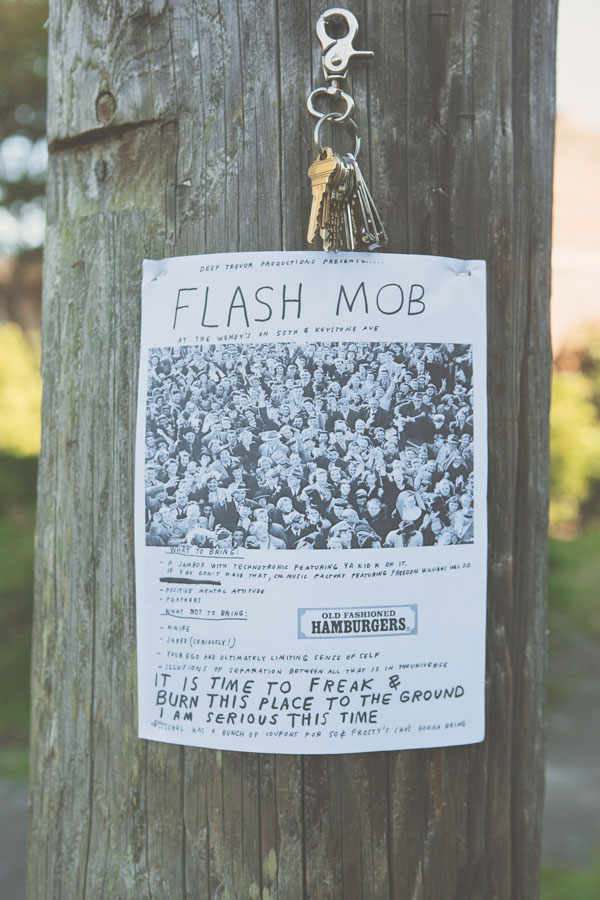 DEEP TREVOR PRODUCTIONS PRESENTS.....
FLASH MOB
AT THE WENDY'S ON 55TH & KEYSTONE AVE
WHAT TO BRING:
- A JAMBOX WITH TECHNOTRONIC FEATURING YA KID K ON IT.
IF YOU DON'T HAVE THAT, C&C MUSIC FACTORY FEATURING FREEDOM WILLIAMS WILL DO
- POSITIVE MENTAL ATTITUDE
- FEATHERS
WHAT NOT TO BRING:
- KNIFE
- JARED (SERIOUSLY!)
- YOUR EGO AND ULTIMATELY LIMITING SENSE OF SELF
- ILLUSIONS OF SEPARATION BETWEEN ALL THAT IS IN THE UNIVERSE
OLD FASHIONED
HAMBURGERS
IT IS TIME TO FREAK &
BURN THIS PLACE TO THE GROUND
I AM SERIOUS THIS TIME
HAS A BUNCH OF COUPONS FOR 50¢ FROSTY'S SHE'S GONNA BRING